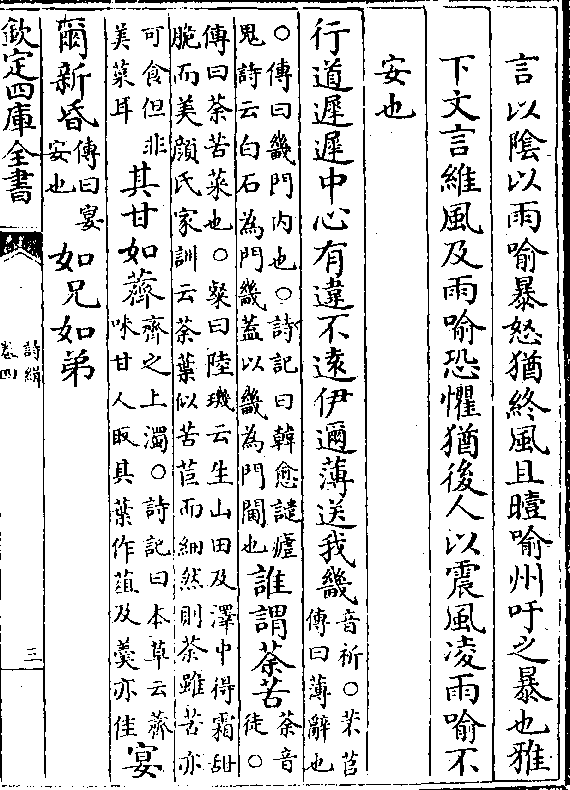 言以陰以雨喻暴怒猶終風且曀喻州吁之暴也雅
下文言維風及雨喻恐懼猶後人以震風凌雨喻不
安也
行道遲遲中心有違不遠伊邇薄送我畿
音祈○芣苢
傳曰薄辭也
○傳曰畿門内也○詩記曰韓愈譴瘧
鬼詩云白石為門畿蓋以畿為門閫也
誰謂荼苦
荼音
徒○
傳曰荼苦菜也○粲曰陸璣云生山田及澤中得霜甜
脆而美顔氏家訓云荼葉似苦苣而細然則荼雖苦亦
可食但非
美菜耳
其甘如薺
齊之上濁○詩記曰本草云薺
味甘人取其葉作菹及羹亦佳
宴
爾新昏
傳曰宴
安也
如兄如弟
欽定四庫全書
詩緝
卷四
三